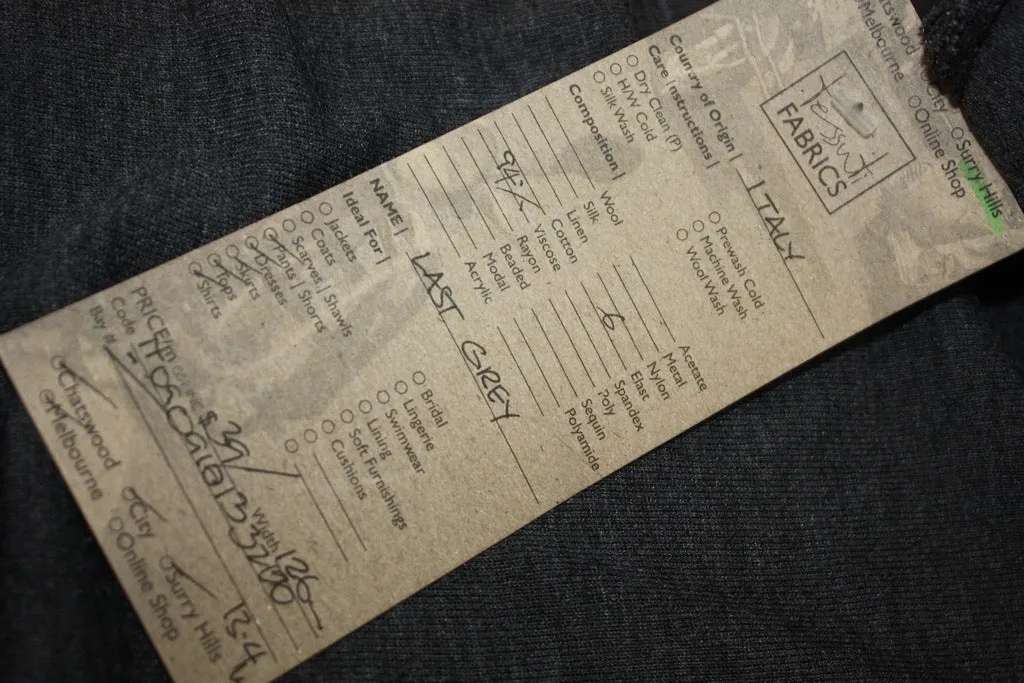 tessuti
FABRICS
Chatswood City Surry Hills
Melbourne Online Shop
Country of Origin | ITALY
Care Instructions |
Dry Clean (P) Prewash Cold
H/W Cold Machine Wash
Silk Wash Wool Wash
Composition |
Wool Acetate
Silk Metal
Linen Nylon
Cotton 6 Elast
94% Viscose Spandex
Rayon Poly
Beaded Sequin
Modal Polyamide
Acrylic
NAME | LAST GREY
Ideal For |
Jackets Bridal
Coats Lingerie
Scarves | Shawls Swimwear
Pants | Shorts Lining
Dresses Soft Furnishings
Skirts Cushions
Tops
Shirts
PRICE/m $39/ Width 126
Code
Buy 13.4
Chatswood City Surry Hills
Melbourne Online Shop